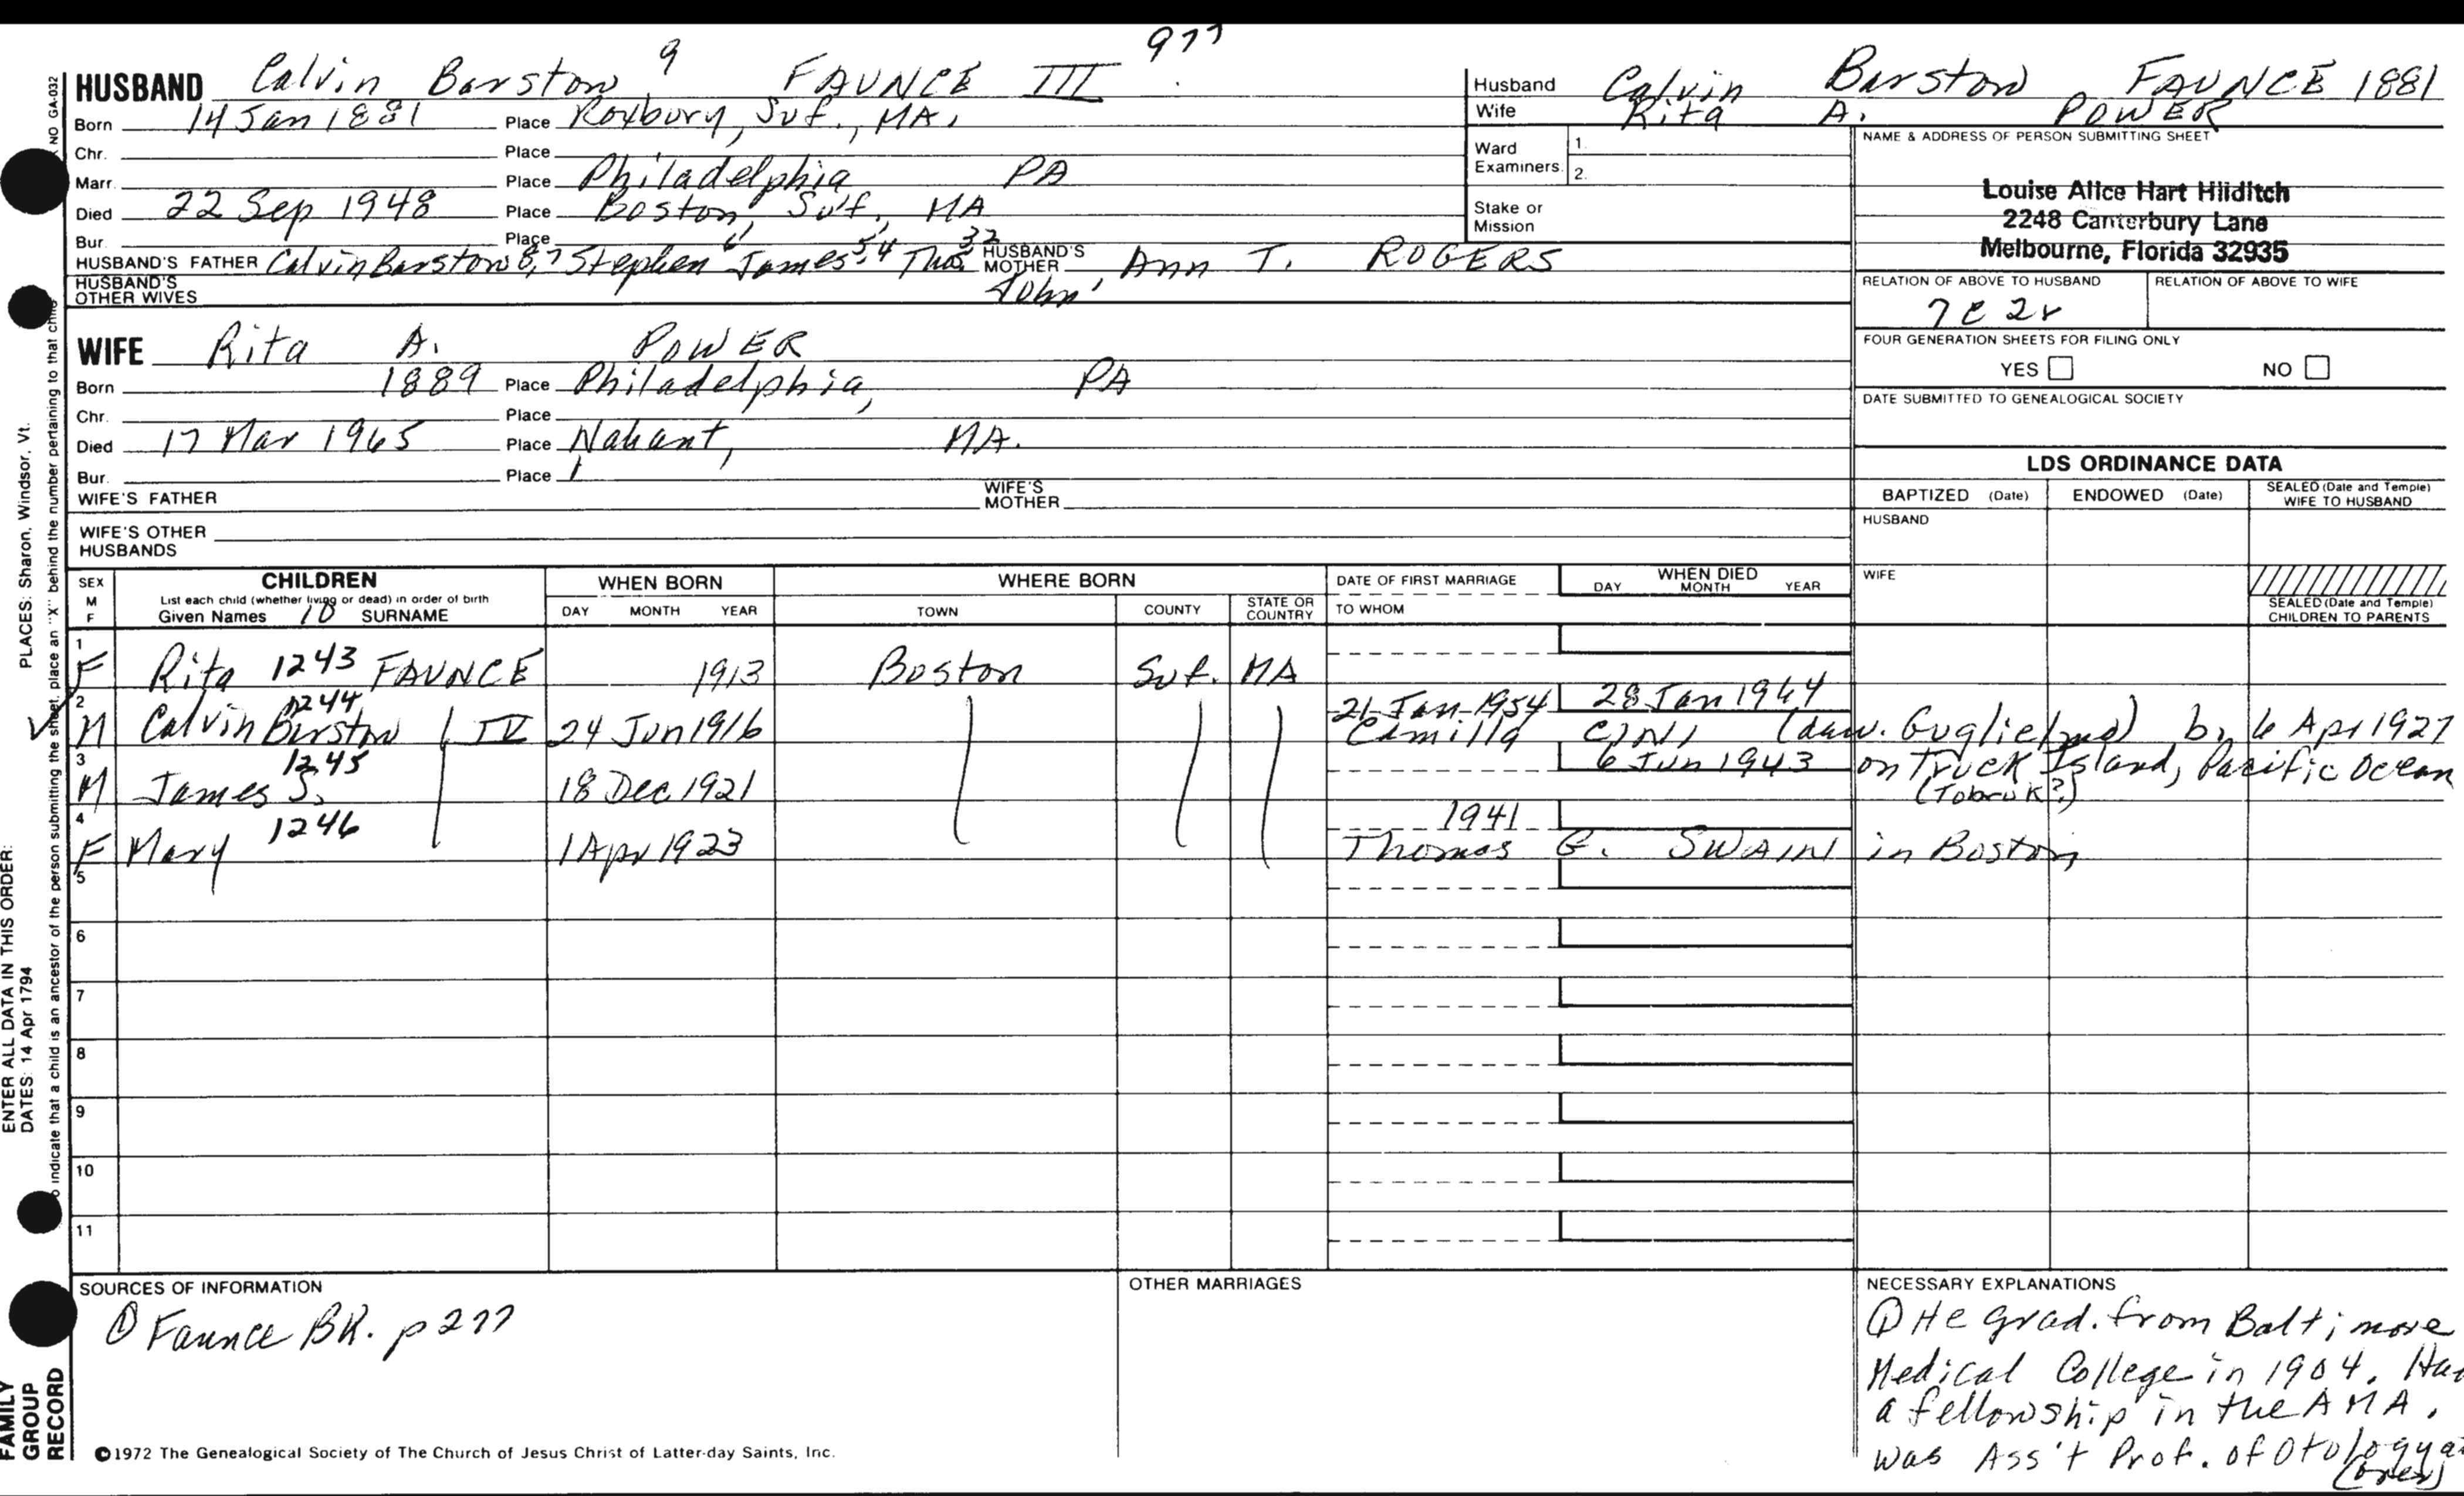 977
HUSBAND Calvin Barstow 9 FAUNCE III
Born 14 Jan 1881 Place Roxbury, Suf., MA.
Chr. Place
Marr. Place Philadelphia PA
Died 22 Sep 1948 Place Boston, Suf., MA
Bur. Place
HUSBAND'S FATHER Calvin Barstow 8, 7 Stephen 6 James 5,4 Thos. 32 John'
HUSBAND'S MOTHER Ann T. ROGERS
HUSBAND'S OTHER WIVES
WIFE Rita A. POWER
Born 1889 Place Philadelphia, PA
Chr. Place
Died 17 Mar 1965 Place Nahant, MA.
Bur. Place
WIFE'S FATHER WIFE'S MOTHER
WIFE'S OTHER HUSBANDS
Husband Calvin Barstow FAUNCE 1881
Wife Rita A. POWER
Ward Examiners 1. 2.
Stake or Mission
NAME & ADDRESS OF PERSON SUBMITTING SHEET
Louise Alice Hart Hilditch
2248 Canterbury Lane
Melbourne, Florida 32935
RELATION OF ABOVE TO HUSBAND RELATION OF ABOVE TO WIFE
7C 2r
FOUR GENERATION SHEETS FOR FILING ONLY
YES NO
DATE SUBMITTED TO GENEALOGICAL SOCIETY
LDS ORDINANCE DATA
BAPTIZED (Date) ENDOWED (Date) SEALED (Date and Temple) WIFE TO HUSBAND
HUSBAND
WIFE
SEALED (Date and Temple) CHILDREN TO PARENTS
SEX M F
CHILDREN
List each child (whether living or dead) in order of birth
Given Names 10 SURNAME
WHEN BORN
DAY MONTH YEAR
WHERE BORN
TOWN COUNTY STATE OR COUNTRY
DATE OF FIRST MARRIAGE
TO WHOM
WHEN DIED
DAY MONTH YEAR
1 F Rita 1243 FAUNCE 1913 Boston Suf. MA
2 M Calvin Barstow 1244 IV 24 Jun 1916 26 Jan 1954 28 Jan 1964
Camilla CINI (dau. Guglielmo) b. 6 Apr 1927
3 M James S. 1245 18 Dec 1921 6 Jun 1943 on Truck Island, Pacific Ocean
(Tobruk?)
4 F Mary 1246 1 Apr 1923 1941
Thomas G. SWAIN in Boston
5
6
7
8
9
10
11
SOURCES OF INFORMATION
① Faunce BK. p 277
OTHER MARRIAGES
NECESSARY EXPLANATIONS
① He grad. from Baltimore
Medical College in 1904. Had
a fellowship in the AMA,
was Ass't Prof. of Otology at
(over)
©1972 The Genealogical Society of The Church of Jesus Christ of Latter-day Saints, Inc.
NO GA-032
PLACES: Sharon, Windsor, Vt.
ENTER ALL DATA IN THIS ORDER:
DATES: 14 Apr 1794
o indicate that a child is an ancestor of the person submitting the sheet, place an "X" behind the number pertaining to that child
FAMILY
GROUP
RECORD